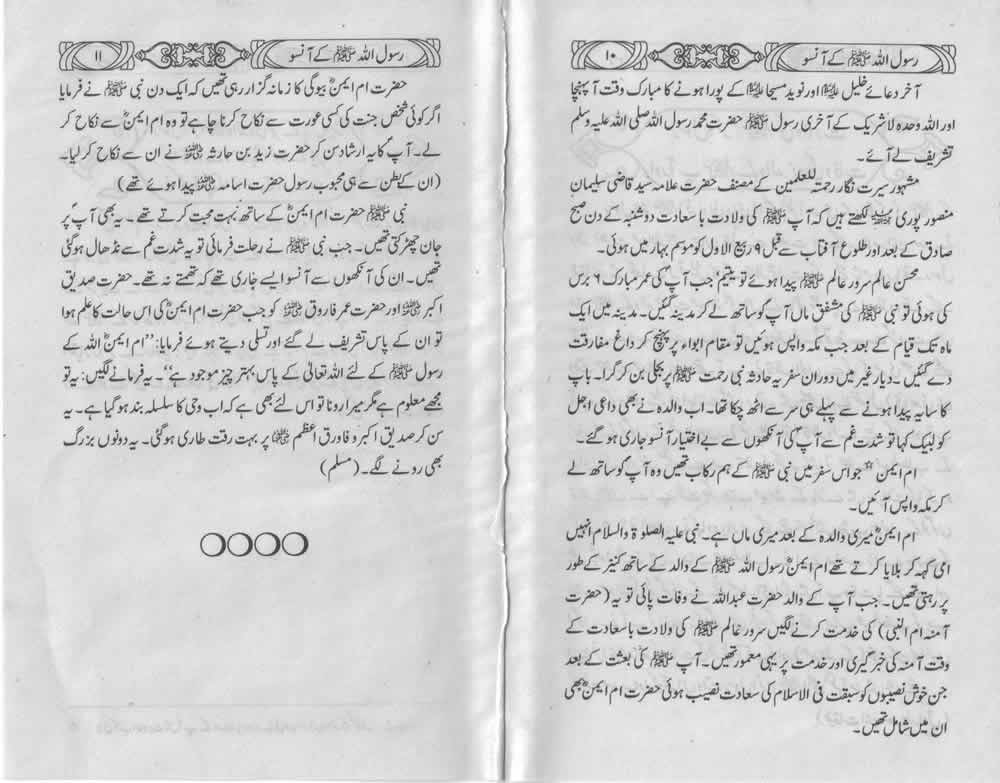 رسول اللہ ﷺ کے آنسو
۱۰
آخر دعائے خلیل علیہ السلام اور نوید مسیحا علیہ السلام کے پورا ہونے کا مبارک وقت آ پہنچا
اور اللہ وحدہ لاشریک کے آخری رسول ﷺ حضرت محمد رسول اللہ صلی اللہ علیہ وسلم
تشریف لے آئے۔
مشہور سیرت نگار رحمتہ للعلمین کے مصنف حضرت علامہ سید قاضی سلیمان
منصور پوری لکھتے ہیں کہ آپ ﷺ کی ولادت باسعادت دوشنبہ کے دن صبح
صادق کے بعد اور طلوع آفتاب سے قبل ۹ ربیع الاول کو موسم بہار میں ہوئی۔
محسن عالم سرور عالم ﷺ پیدا ہوئے تو یتیم' جب آپ کی عمر مبارک ۶ برس
کی ہوئی تو نبی ﷺ کی مشفق ماں آپ کو ساتھ لے کر مدینہ گئیں۔ مدینہ میں ایک
ماہ تک قیام کے بعد جب مکہ واپس ہوئیں تو مقام ابواء پر پہنچ کر داغ مفارقت
دے گئیں۔ دیار غیر میں دوران سفر یہ حادثہ نبی رحمت ﷺ پر بجلی بن کر گرا۔ باپ
کا سایہ پیدا ہونے سے پہلے ہی سر سے اٹھ چکا تھا۔ اب والدہ نے بھی داعی اجل
کو لبیک کہا تو شدت غم سے آپ کی آنکھوں سے بے اختیار آنسو جاری ہو گئے۔
ام ایمن جو اس سفر میں نبی ﷺ کے ہم رکاب تھیں وہ آپ کو ساتھ لے
کر مکہ واپس آئیں۔
ام ایمنؓ میری والدہ کے بعد میری ماں ہے۔ نبی علیہ الصلوۃ والسلام انہیں
امی کہہ کر بلایا کرتے تھے ام ایمنؓ رسول اللہ ﷺ کے والد کے ساتھ کنیز کے طور
پر رہتی تھیں۔ جب آپ کے والد حضرت عبداللہ نے وفات پائی تو یہ (حضرت
آمنہ ام النبی) کی خدمت کرنے لگیں سرور عالم ﷺ کی ولادت باسعادت کے
وقت آمنہ کی خبر گیری اور خدمت پر یہی معمور تھیں۔ آپ ﷺ کی بعثت کے بعد
جن خوش نصیبوں کو سبقت فی الاسلام کی سعادت نصیب ہوئی حضرت ام ایمنؓ بھی
ان میں شامل تھیں۔
رسول اللہ ﷺ کے آنسو
۱۱
حضرت ام ایمنؓ بیوگی کا زمانہ گزار رہی تھیں کہ ایک دن نبی ﷺ نے فرمایا
اگر کوئی شخص جنت کی کسی عورت سے نکاح کرنا چاہے تو وہ ام ایمنؓ سے نکاح کر
لے۔ آپؐ کا یہ ارشاد سن کر حضرت زید بن حارثہ رضی اللہ عنہ نے ان سے نکاح کر لیا۔
(ان کے بطن سے ہی محبوب رسول حضرت اسامہ رضی اللہ عنہ پیدا ہوئے تھے)
نبی ﷺ حضرت ام ایمنؓ کے ساتھ بہت محبت کرتے تھے۔ یہ بھی آپؐ پر
جان چھڑکتی تھیں۔ جب نبی ﷺ نے رحلت فرمائی تو یہ شدت غم سے نڈھال ہو گئی
تھیں۔ ان کی آنکھوں سے آنسو ایسے جاری تھے کہ تھمتے نہ تھے۔ حضرت صدیق
اکبر رضی اللہ عنہ اور حضرت عمر فاروق رضی اللہ عنہ کو جب حضرت ام ایمنؓ کی اس حالت کا علم ہوا
تو ان کے پاس تشریف لے گئے اور تسلی دیتے ہوئے فرمایا: ''ام ایمنؓ اللہ کے
رسول ﷺ کے لئے اللہ تعالیٰ کے پاس بہتر چیز موجود ہے''۔ یہ فرمانے لگیں: یہ تو
مجھے معلوم ہے مگر میرا رونا تو اس لئے بھی ہے کہ اب وحی کا سلسلہ بند ہو گیا ہے۔ یہ
سن کر صدیق اکبر و فاورق اعظم رضی اللہ عنہ پر بہت رقت طاری ہو گئی۔ یہ دونوں بزرگ
بھی رونے لگے۔ (مسلم)